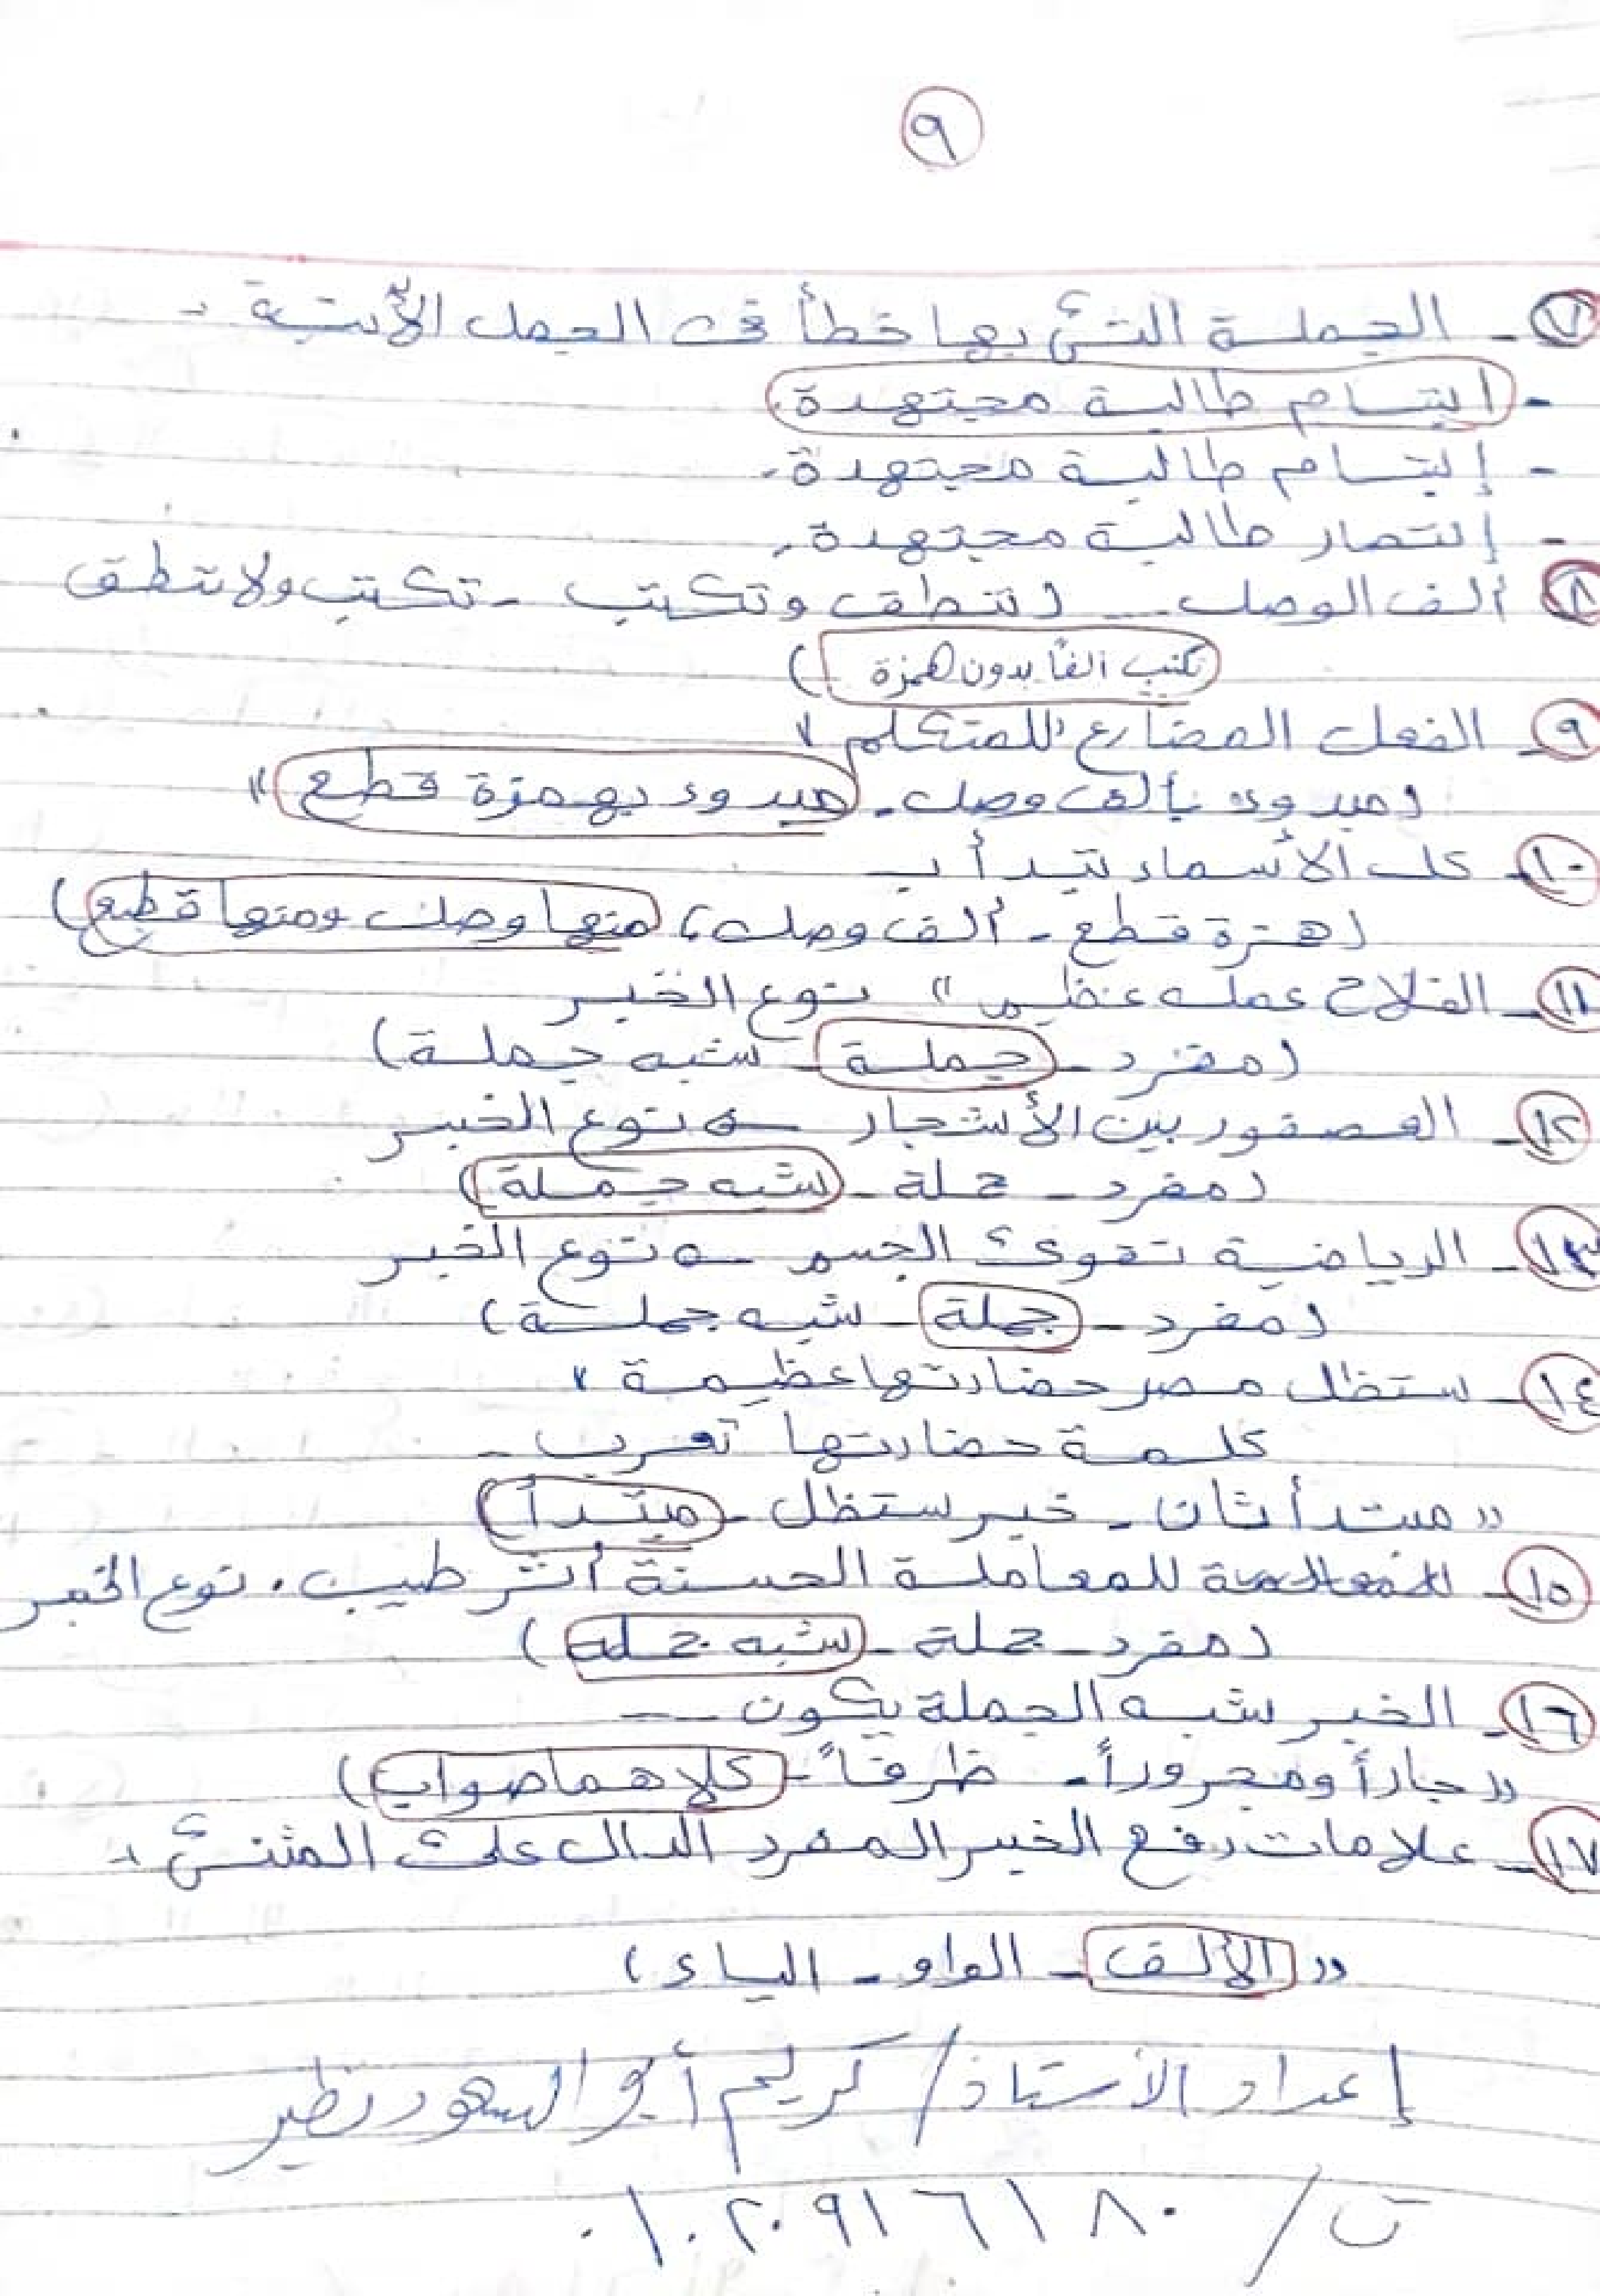 ٩
٧- الجملة التى بها خطأ فى الجمل الآتية -
- ابتسام طالبة مجتهدة.
- إبتسام طالبة مجتهدة.
- إنتصار طالبة مجتهدة.
٨- ألف الوصل ... (تنطق وتكتب - تكتب ولا تنطق
تكتب ألفًا بدون همزة)
٩- الفعل المضارع "للمتكلم"
(مبدوء بألف وصل - مبدوء بهمزة قطع"
١٠- كل الأسماء تبدأ بـ
(همزة قطع - ألف وصل، منها وصل ومنها قطع)
١١- الفلاح عمله عظيم" نوع الخبر
(مفرد - جملة - شبه جملة)
١٢- العصفور بين الأشجار ← نوع الخبر
(مفرد - جملة - شبه جملة)
١٣- الرياضية تقوى الجسم ← نوع الخبر
(مفرد - جملة - شبه جملة)
١٤- ستظل مصر حضارتها عظيمة "
كلمة حضارتها تعرب -
"مبتدأ ثان - خبر ستظل - مبتدأ)
١٥- للمعاملة الحسنة أثر طيب. نوع الخبر
(مفرد - جملة - شبه جملة)
١٦- الخبر شبه الجملة يكون ---
"جاراً ومجروراً - ظرفاً - كلاهما صواب)
١٧- علامات رفع الخبر المفرد الدال على المثنى -
"الألف - الواو - الياء)
إعداد الأستاذ/ كريم أبو السعود نظير
ت/ ٠١٠٢٠٩١٦١٨٠